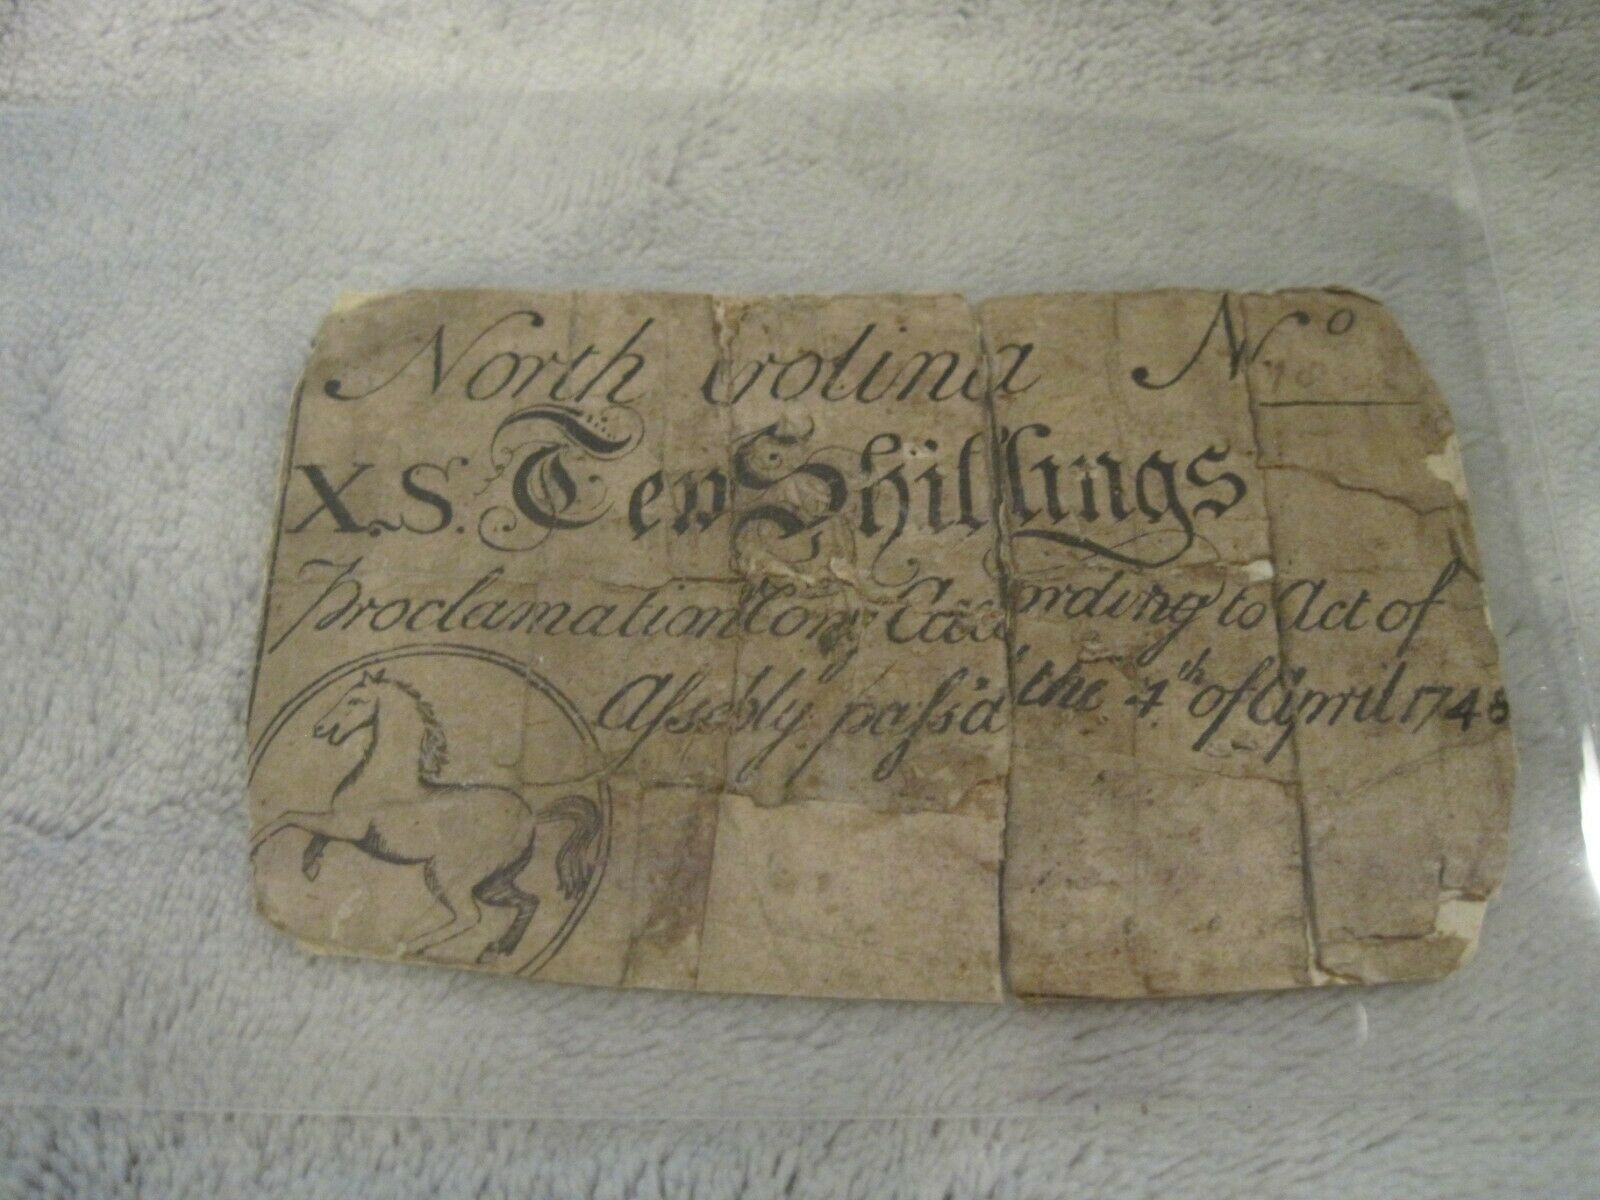 North Carolina No
X.S. Ten Shillings
Proclamation Mony According to Act of
Assebly pass'd the 4th of April 1748